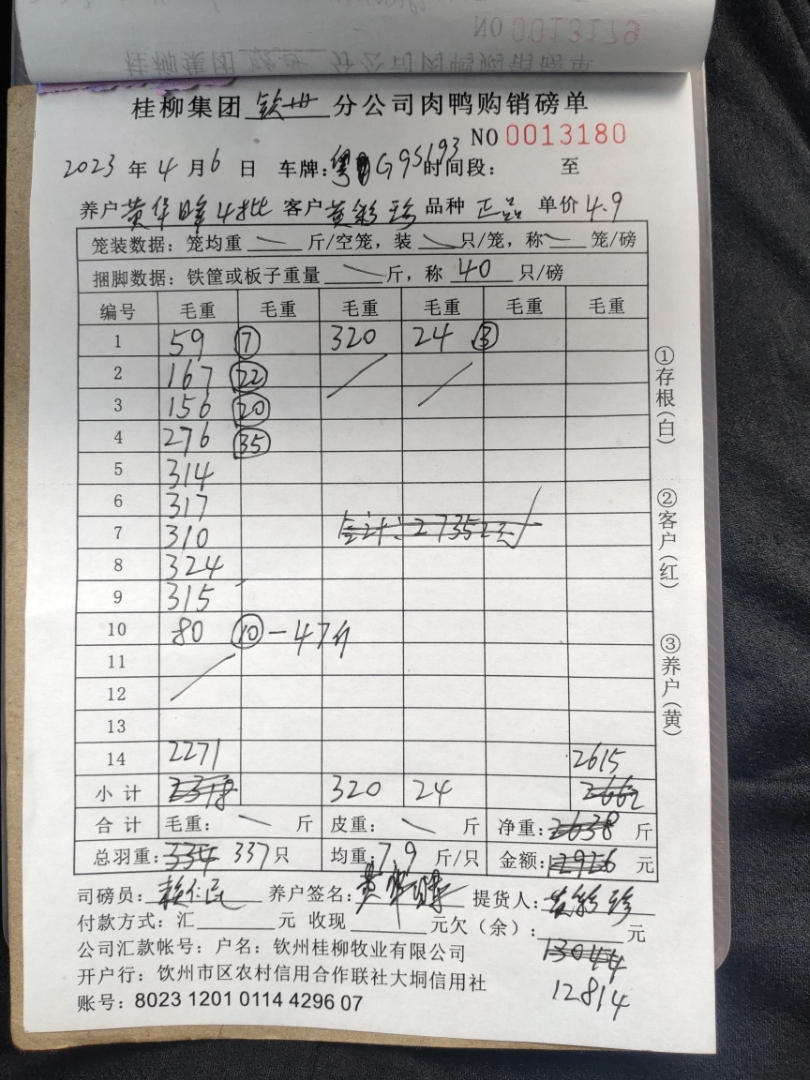 NO 0013179
桂柳集团 钦州 分公司肉鸭购销磅单
NO 0013180
2023 年 4 月 6 日 车牌: 粤 G95193 时间段: 至
养户 黄华峰4批 客户 黄彩珍 品种 正品 单价 4.9
笼装数据: 笼均重 斤/空笼, 装 只/笼, 称 笼/磅
捆脚数据: 铁筐或板子重量 斤, 称 40 只/磅
编号 毛重 毛重 毛重 毛重 毛重 毛重
1 59 ⑦ 320 24 ③
2 167 ㉒
3 156 ⑳
4 276 ㉟
5 314
6 317
7 310 合计: 27352元
8 324
9 315
10 80 ⑩ -47斤
11
12
13
14 2271 2615
小计 2318 320 24 2662
合计 毛重: 斤 皮重: 斤 净重: 2638 斤
总羽重: 334 337 只 均重: 7.9 斤/只 金额: 12926 元
司磅员: 赖仁民 养户签名: 黄华峰 提货人: 黄彩珍
付款方式: 汇 元 收现 元欠(余): 元
公司汇款帐号: 户名: 钦州桂柳牧业有限公司
13044
开户行: 饮州市区农村信用合作联社大垌信用社
12814
账号: 8023 1201 0114 4296 07
①存根(白)
②客户(红)
③养户(黄)